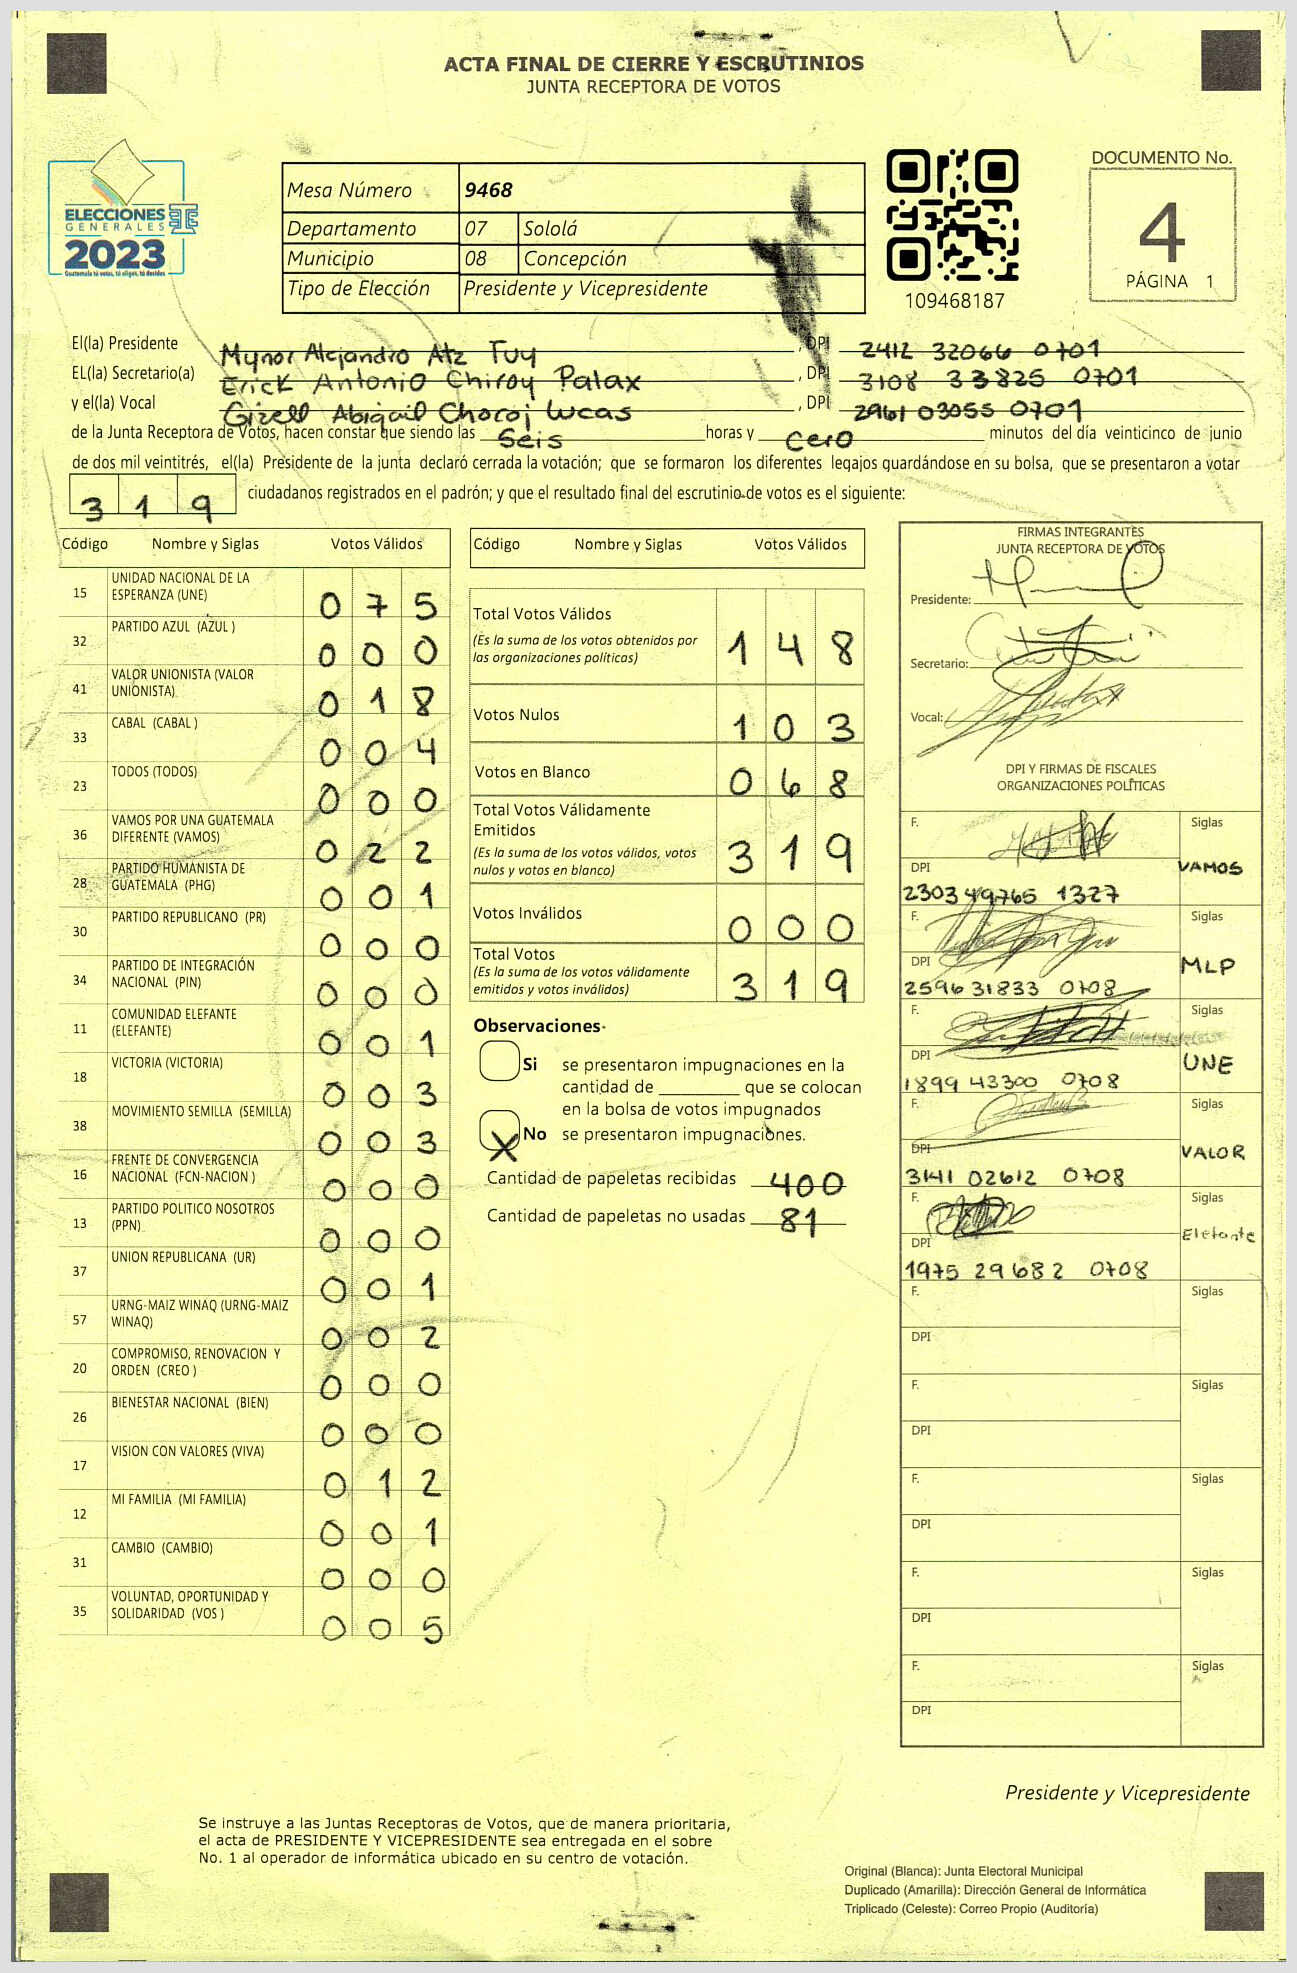 ACTA FINAL DE CIERRE Y ESCRUTINIOS
JUNTA RECEPTORA DE VOTOS
ELECCIONES
GENERALES
2023
Guatemala tú votas, tú eliges, tú decides
Mesa Número 9468
Departamento 07 Sololá
Municipio 08 Concepción
Tipo de Elección Presidente y Vicepresidente
109468187
DOCUMENTO No.
4
PÁGINA 1
El(la) Presidente Mynor Alejandro Atz Tuy, DPI 2412 32066 0701
EL(la) Secretario(a) Erick Antonio Chiroy Palax, DPI 3108 33825 0701
y el(la) Vocal Gizell Abigail Chocoj Lucas, DPI 2961 03055 0701
de la Junta Receptora de Votos, hacen constar que siendo las Seis horas y cero minutos del día veinticinco de junio
de dos mil veintitrés, el(la) Presidente de la junta declaró cerrada la votación; que se formaron los diferentes legajos guardándose en su bolsa, que se presentaron a votar
319 ciudadanos registrados en el padrón; y que el resultado final del escrutinio de votos es el siguiente:
Código Nombre y Siglas Votos Válidos
15 UNIDAD NACIONAL DE LA ESPERANZA (UNE) 075
32 PARTIDO AZUL (AZUL ) 000
41 VALOR UNIONISTA (VALOR UNIONISTA) 018
33 CABAL (CABAL ) 004
23 TODOS (TODOS) 000
36 VAMOS POR UNA GUATEMALA DIFERENTE (VAMOS) 022
28 PARTIDO HUMANISTA DE GUATEMALA (PHG) 001
30 PARTIDO REPUBLICANO (PR) 000
34 PARTIDO DE INTEGRACIÓN NACIONAL (PIN) 000
11 COMUNIDAD ELEFANTE (ELEFANTE) 001
18 VICTORIA (VICTORIA) 003
38 MOVIMIENTO SEMILLA (SEMILLA) 003
16 FRENTE DE CONVERGENCIA NACIONAL (FCN-NACION ) 000
13 PARTIDO POLITICO NOSOTROS (PPN) 000
37 UNION REPUBLICANA (UR) 001
57 URNG-MAIZ WINAQ (URNG-MAIZ WINAQ) 002
20 COMPROMISO, RENOVACION Y ORDEN (CREO ) 000
26 BIENESTAR NACIONAL (BIEN) 000
17 VISION CON VALORES (VIVA) 012
12 MI FAMILIA (MI FAMILIA) 001
31 CAMBIO (CAMBIO) 000
35 VOLUNTAD, OPORTUNIDAD Y SOLIDARIDAD (VOS ) 005
Código Nombre y Siglas Votos Válidos
Total Votos Válidos 148
(Es la suma de los votos obtenidos por
las organizaciones políticas)
Votos Nulos 103
Votos en Blanco 068
Total Votos Válidamente
Emitidos 319
(Es la suma de los votos válidos, votos
nulos y votos en blanco)
Votos Inválidos 000
Total Votos 319
(Es la suma de los votos válidamente
emitidos y votos inválidos)
Observaciones
Si se presentaron impugnaciones en la
cantidad de ________ que se colocan
en la bolsa de votos impugnados
X No se presentaron impugnaciones.
Cantidad de papeletas recibidas 400
Cantidad de papeletas no usadas 81
FIRMAS INTEGRANTES
JUNTA RECEPTORA DE VOTOS
Presidente:
Secretario:
Vocal:
DPI Y FIRMAS DE FISCALES
ORGANIZACIONES POLÍTICAS
F. Siglas
DPI VAMOS
2303 49765 1327
F. Siglas
DPI MLP
2596 31833 0708
F. Siglas
DPI UNE
1899 43300 0708
F. Siglas
DPI VALOR
3141 02612 0708
F. Siglas
DPI Elefante
1975 29682 0708
F. Siglas
DPI
F. Siglas
DPI
F. Siglas
DPI
F. Siglas
DPI
F. Siglas
DPI
Presidente y Vicepresidente
Se instruye a las Juntas Receptoras de Votos, que de manera prioritaria,
el acta de PRESIDENTE Y VICEPRESIDENTE sea entregada en el sobre
No. 1 al operador de informática ubicado en su centro de votación.
Original (Blanca): Junta Electoral Municipal
Duplicado (Amarilla): Dirección General de Informática
Triplicado (Celeste): Correo Propio (Auditoría)